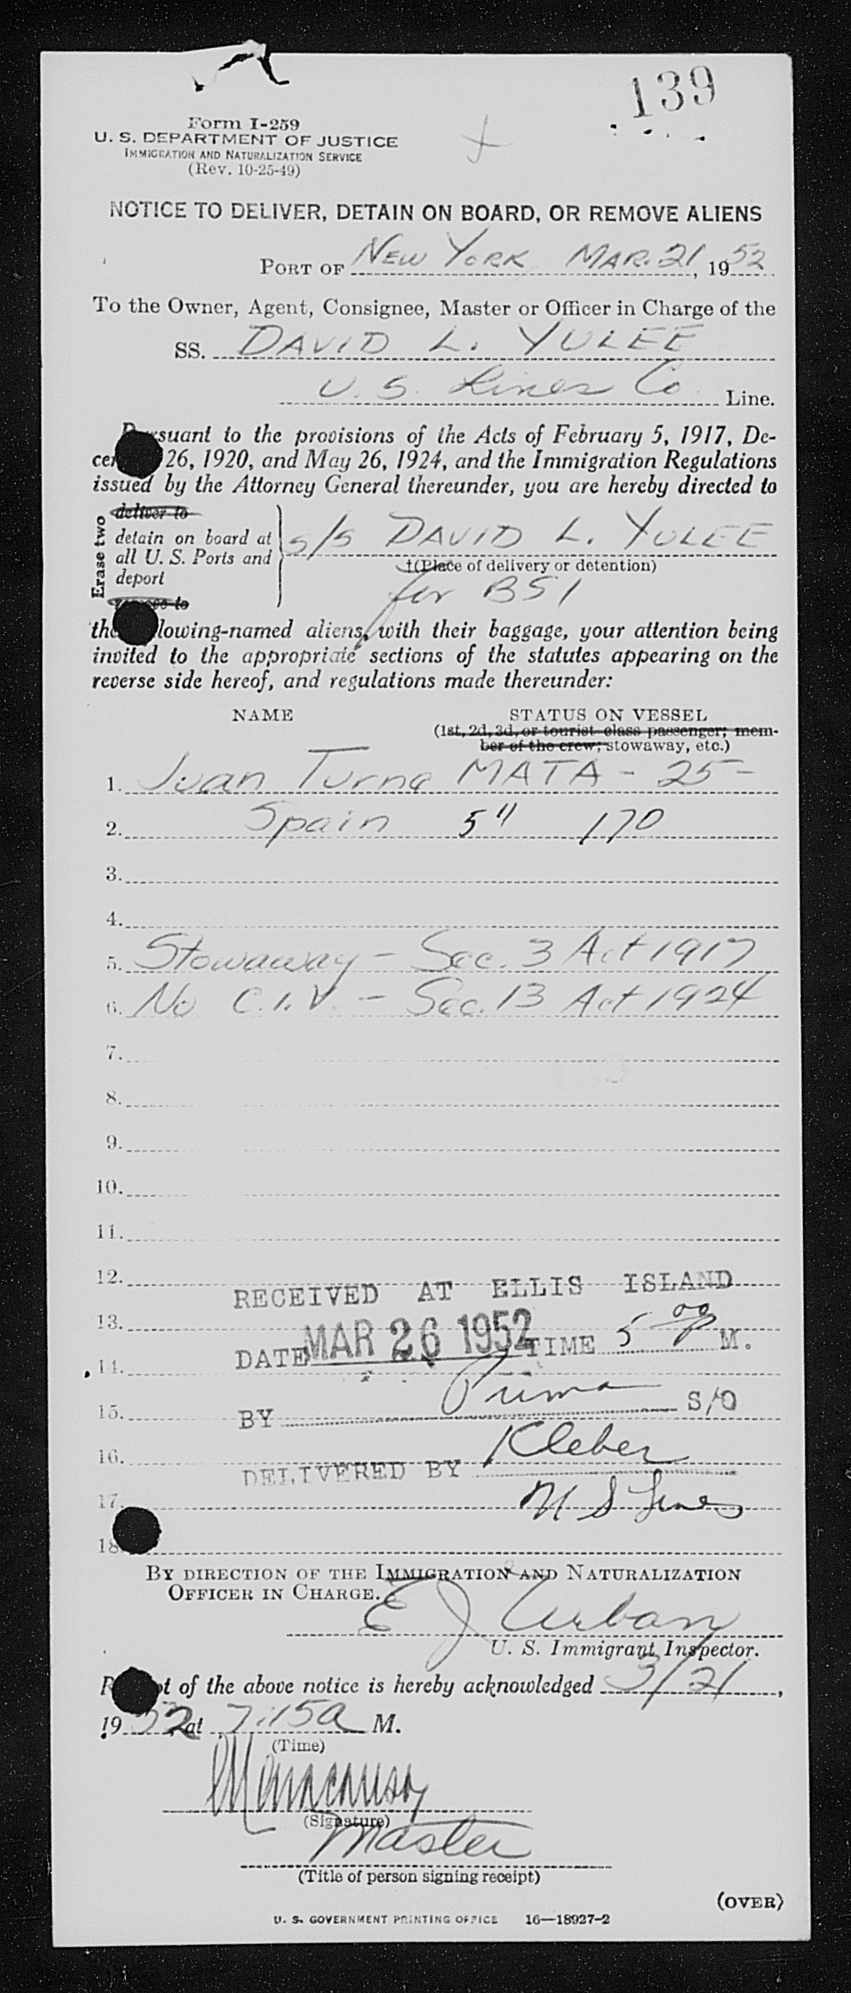 139
Form I-259
U. S. DEPARTMENT OF JUSTICE
IMMIGRATION AND NATURALIZATION SERVICE
(Rev. 10-25-49)
NOTICE TO DELIVER, DETAIN ON BOARD, OR REMOVE ALIENS
PORT OF NEW YORK MAR. 21, 1952
To the Owner, Agent, Consignee, Master or Officer in Charge of the
SS. DAVID L. YULEE
U.S. Lines Co Line.
Pursuant to the provisions of the Acts of February 5, 1917, De-
cember 26, 1920, and May 26, 1924, and the Immigration Regulations
issued by the Attorney General thereunder, you are hereby directed to
Erase two
deliver to
detain on board at
all U. S. Ports and
deport
remove to
s/s DAVID L. YULEE
†(Place of delivery or detention)
for BSI
the following-named aliens, with their baggage, your attention being
invited to the appropriate sections of the statutes appearing on the
reverse side hereof, and regulations made thereunder:
NAME STATUS ON VESSEL
(1st, 2d, 3d, or tourist class passenger; mem-
ber of the crew; stowaway, etc.)
1. Juan Turna MATA - 25 -
2. Spain 5" 170
3.
4.
5. Stowaway - Sec. 3 Act 1917
6. No C.I.V. - Sec. 13 Act 1924
7.
8.
9.
10.
11.
12.
RECEIVED AT ELLIS ISLAND
13.
DATE MAR 26 1952 TIME 5 00 P M.
14.
15.
BY S/O
16.
DELIVERED BY Kleber
17. U S Lines
18.
BY DIRECTION OF THE IMMIGRATION AND NATURALIZATION
OFFICER IN CHARGE.
E J Urban
U. S. Immigrant Inspector.
Receipt of the above notice is hereby acknowledged 3/21,
1952 at 7:15a M.
(Time)
(Signature)
Master
(Title of person signing receipt)
(OVER)
U. S. GOVERNMENT PRINTING OFFICE 16—18927-2